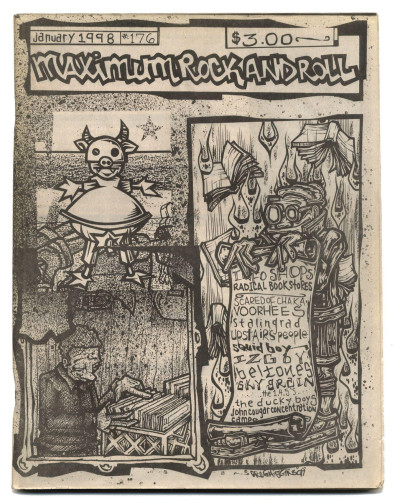 january 1998 #176
$3.00
MAXIMUMROCKANDROLL
INFO SHOPS
RADICAL BOOKSTORES
SCARED OF CHAKA
VOORHEES
stalingrad
UPSTAIRS PEOPLE
squid boy
IZGBY
beltones
SKY BRAIN
the ducky boys
john cougar concentration